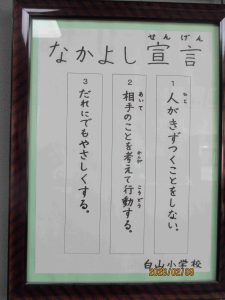 なかよし宣言
せんげん
1 人がきずつくことをしない。
ひと
2 相手のことを考えて行動する。
あいて かんが こうどう
3 だれにでもやさしくする。
白山小学校